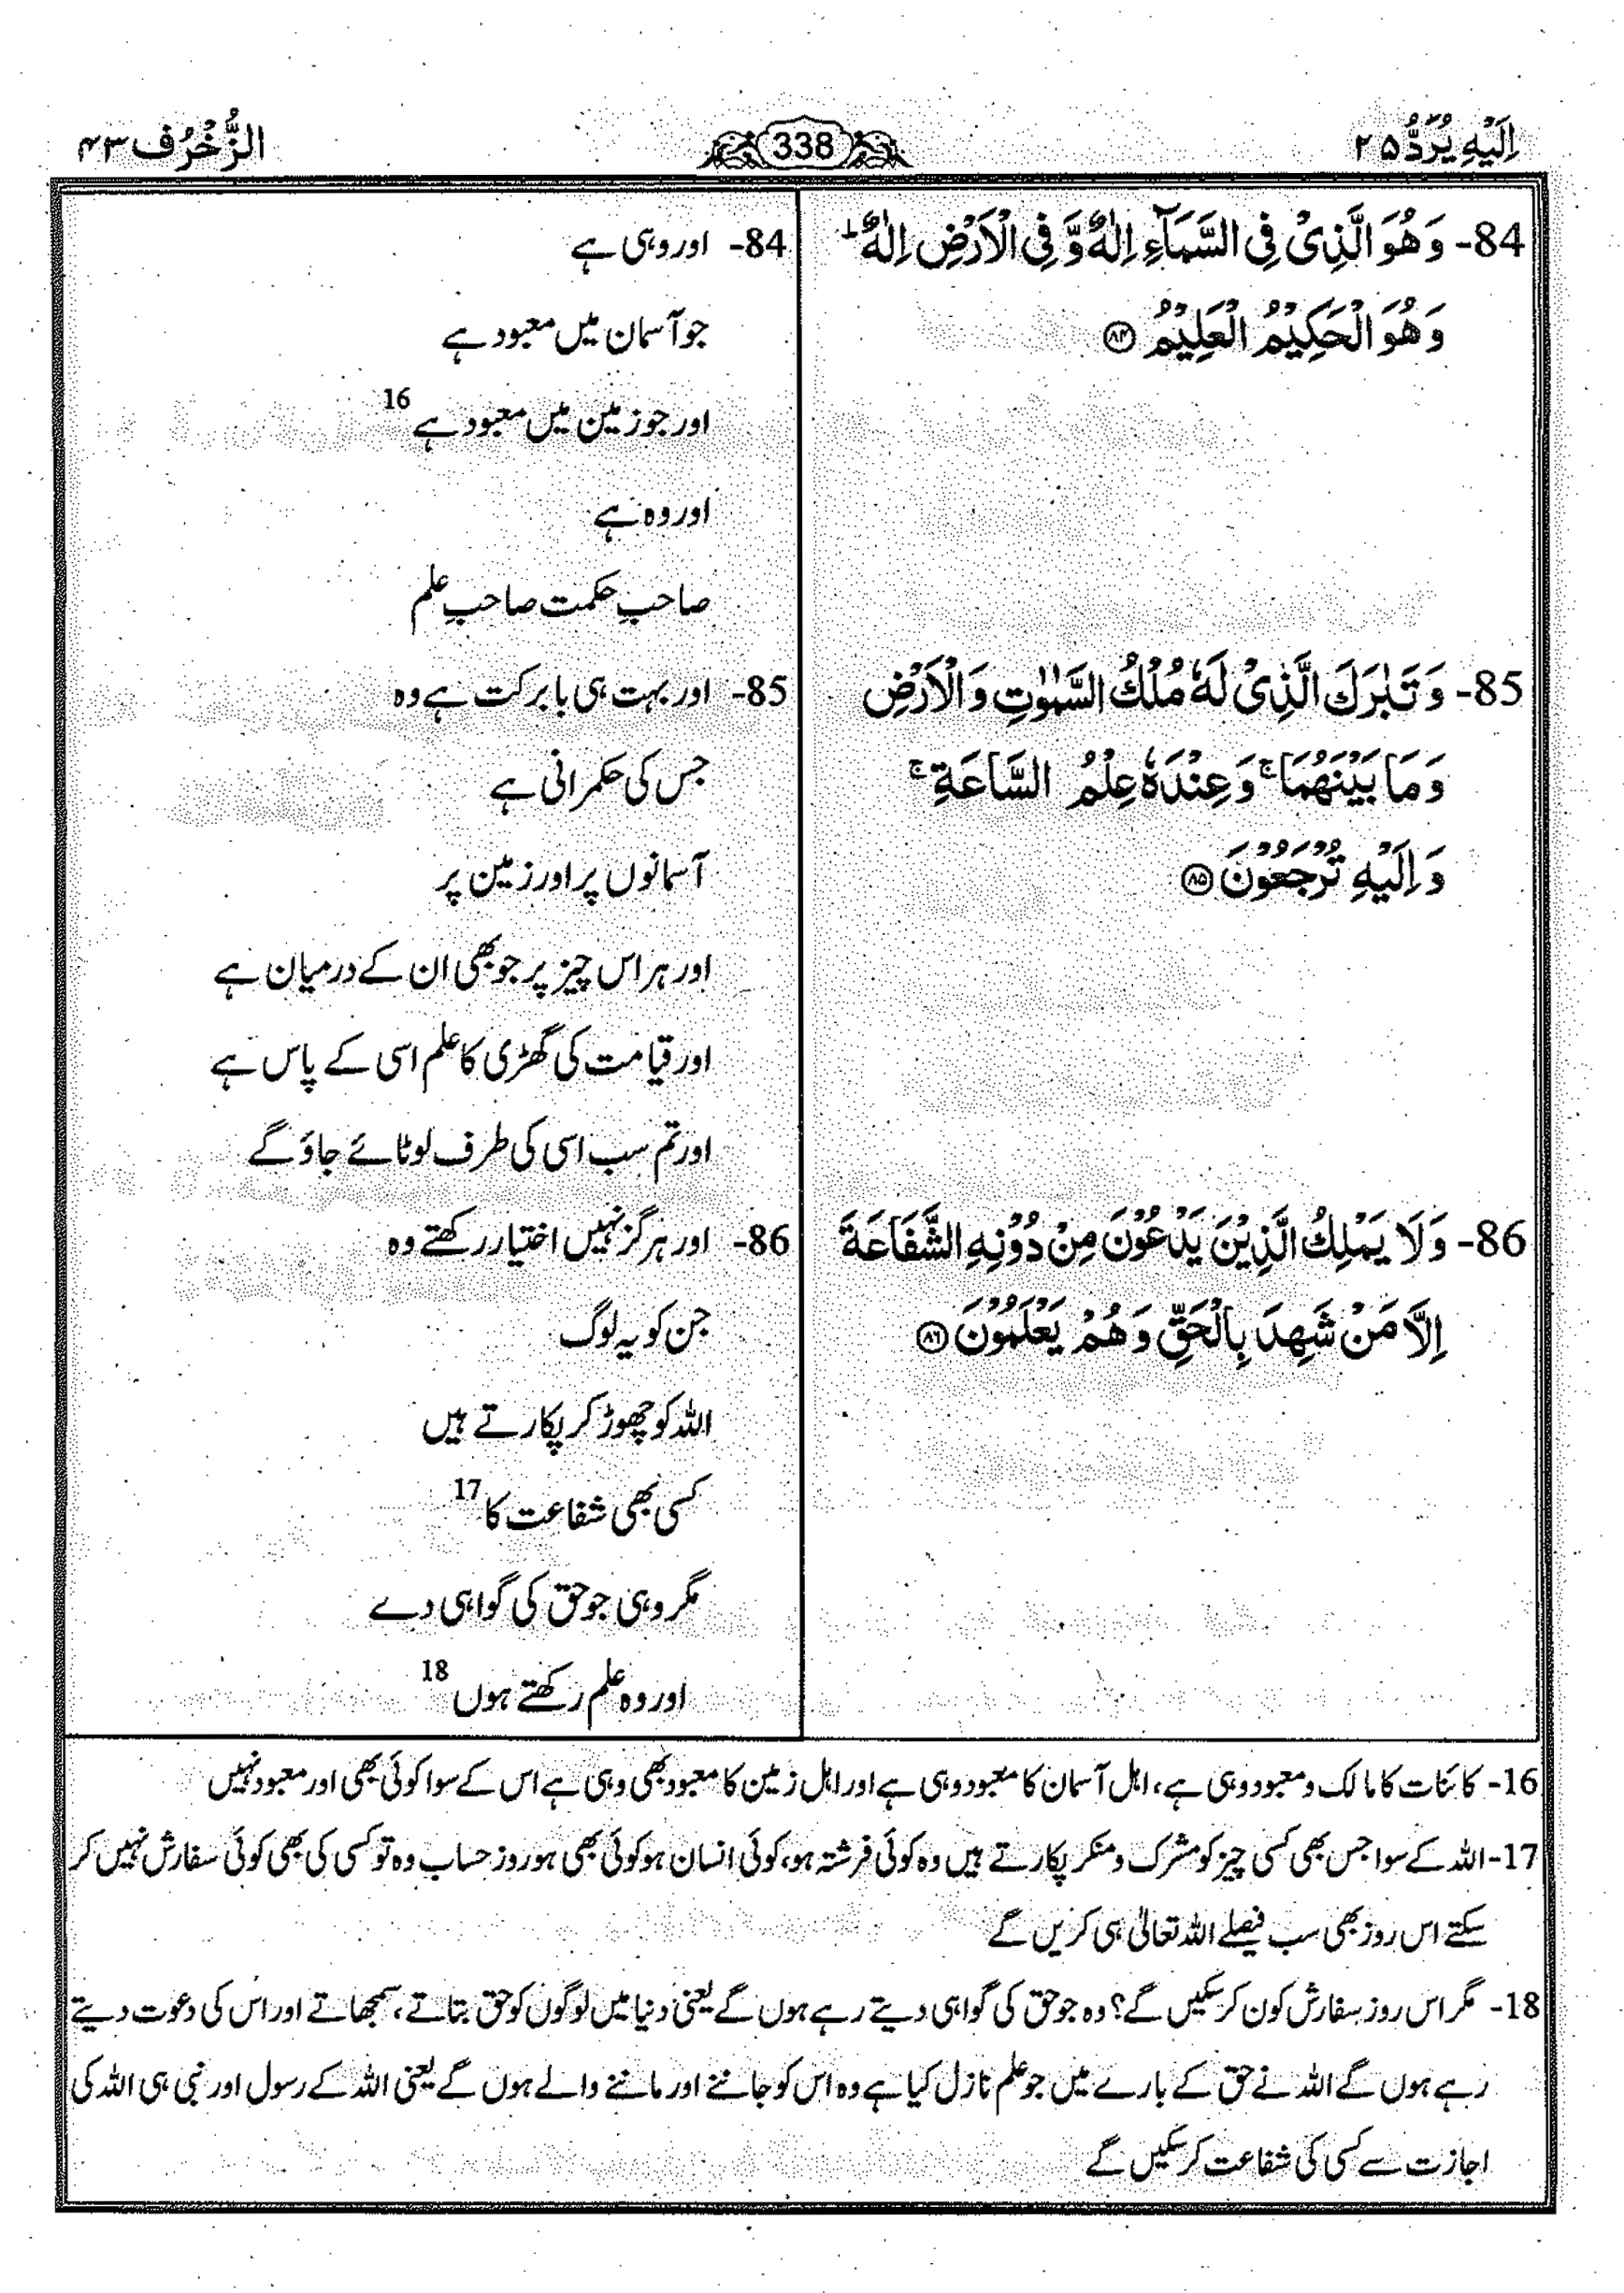 اِلَیْهِ یُرَدُّ ۲۵
338
الزُّخْرُف ۴۳
84- وَ هُوَ الَّذِیْ فِی السَّمَآءِ اِلٰهٌ وَّ فِی الْاَرْضِ اِلٰهٌ ؕ
وَ هُوَ الْحَكِیْمُ الْعَلِیْمُ ﴿۸۴﴾
84- اور وہی ہے
جو آسمان میں معبود ہے
اور جو زمین میں معبود ہے 16
اور وہ ہے
صاحبِ حکمت صاحبِ علم
85- وَ تَبٰرَكَ الَّذِیْ لَهٗ مُلْكُ السَّمٰوٰتِ وَ الْاَرْضِ
وَ مَا بَیْنَهُمَا ۚ وَ عِنْدَهٗ عِلْمُ السَّاعَةِ ۚ
وَ اِلَیْهِ تُرْجَعُوْنَ ﴿۸۵﴾
85- اور بہت ہی بابرکت ہے وہ
جس کی حکمرانی ہے
آسمانوں پر اور زمین پر
اور ہر اس چیز پر جو بھی ان کے درمیان ہے
اور قیامت کی گھڑی کا علم اسی کے پاس ہے
اور تم سب اسی کی طرف لوٹائے جاؤ گے
86- وَ لَا یَمْلِكُ الَّذِیْنَ یَدْعُوْنَ مِنْ دُوْنِهِ الشَّفَاعَةَ
اِلَّا مَنْ شَهِدَ بِالْحَقِّ وَ هُمْ یَعْلَمُوْنَ ﴿۸۶﴾
86- اور ہرگز نہیں اختیار رکھتے وہ
جن کو یہ لوگ
اللہ کو چھوڑ کر پکارتے ہیں
کسی بھی شفاعت کا 17
مگر وہی جو حق کی گواہی دے
اور وہ علم رکھتے ہوں 18
16- کائنات کا مالک و معبود وہی ہے، اہل آسمان کا معبود وہی ہے اور اہل زمین کا معبود بھی وہی ہے اس کے سوا کوئی بھی اور معبود نہیں
17- اللہ کے سوا جس بھی کسی چیز کو مشرک و منکر پکارتے ہیں وہ کوئی فرشتہ ہو، کوئی انسان ہو کوئی بھی ہو روز حساب وہ تو کسی کی بھی کوئی سفارش نہیں کر
سکتے اس روز بھی سب فیصلے اللہ تعالیٰ ہی کریں گے
18- مگر اس روز سفارش کون کر سکیں گے؟ وہ جو حق کی گواہی دیتے رہے ہوں گے یعنی دنیا میں لوگوں کو حق بتاتے، سمجھاتے اور اس کی دعوت دیتے
رہے ہوں گے اللہ نے حق کے بارے میں جو علم نازل کیا ہے وہ اس کو جاننے اور ماننے والے ہوں گے یعنی اللہ کے رسول اور نبی ہی اللہ کی
اجازت سے کسی کی شفاعت کر سکیں گے